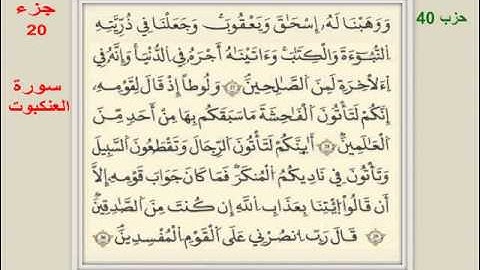 جزء
20
حزب 40
سورة
العنكبوت
وَوَهَبْنَا لَهُۥٓ إِسْحَٰقَ وَيَعْقُوبَ وَجَعَلْنَا فِي ذُرِّيَّتِهِ
اِ۬لنُّبُوٓءَةَ وَالْكِتَٰبَ وَءَاتَيْنَٰهُ أَجْرَهُۥ فِي اِ۬لدُّنْيَا وَإِنَّهُۥ فِي
اِ۬لَاخِرَةِ لَمِنَ اَ۬لصَّٰلِحِينَ وَلُوطاً اِذْ قَالَ لِقَوْمِهِۦٓ
إِنَّكُمْ لَتَاتُونَ اَ۬لْفَٰحِشَةَ مَا سَبَقَكُم بِهَا مِنَ اَحَدٖ مِّنَ
اَ۬لْعَٰلَمِينَ أَيِنَّكُمْ لَتَاتُونَ اَ۬لرِّجَالَ وَتَقْطَعُونَ اَ۬لسَّبِيلَ
وَتَاتُونَ فِي نَادِيكُمُ اُ۬لْمُنكَرَ فَمَا كَانَ جَوَابَ قَوْمِهِۦٓ إِلَّآ
أَن قَالُواْ اُ۪يتِنَا بِعَذَابِ اِ۬للَّهِ إِن كُنتَ مِنَ اَ۬لصَّٰدِقِينَ
قَالَ رَبِّ اِ۟نصُرْنِي عَلَى اَ۬لْقَوْمِ اِ۬لْمُفْسِدِينَ